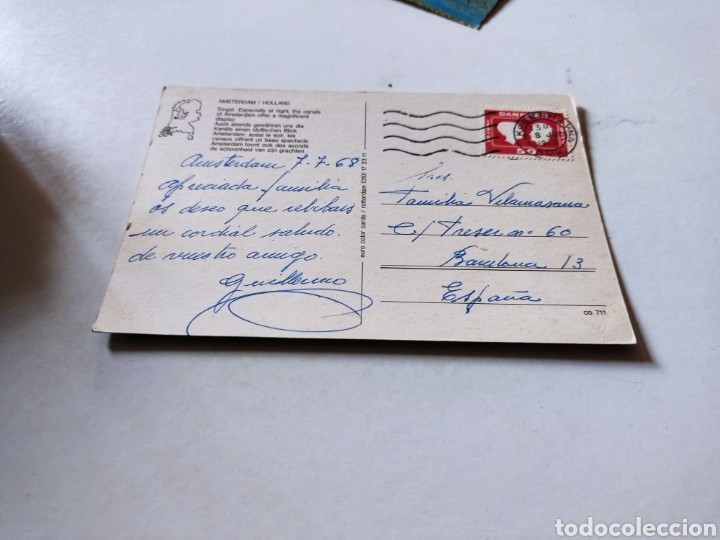 AMSTERDAM / HOLLAND
Singel: Especially at night, the canals
of Amsterdam offer a magnificent
display
Auch abends gewähren uns die
Kanäle einen idyllischen Blick
Amsterdam: aussi le soir, les
canaux offrent un beau spectacle
Amsterdam toont ook des avonds
de schoonheid van zijn grachten
Amsterdam 7-7-68
Apreciada familia
os deseo que recibais
un cordial saludo.
de vuestro amigo.
Guillermo
euro color cards / rotterdam 010/ 17 23 11
DANMARK
50
30
8
Sres.
Familia Vilamasana
C/ Freser nº 60
Barcelona 13
España
co 711
todocoleccion